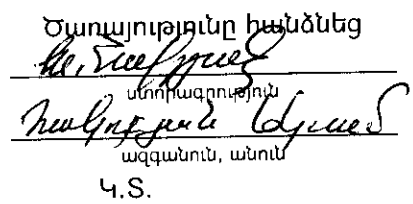 Ծառայությունը հանձնեց
ստորագրություն
Հակոբյան
ազգանուն, անուն
Կ.Տ.